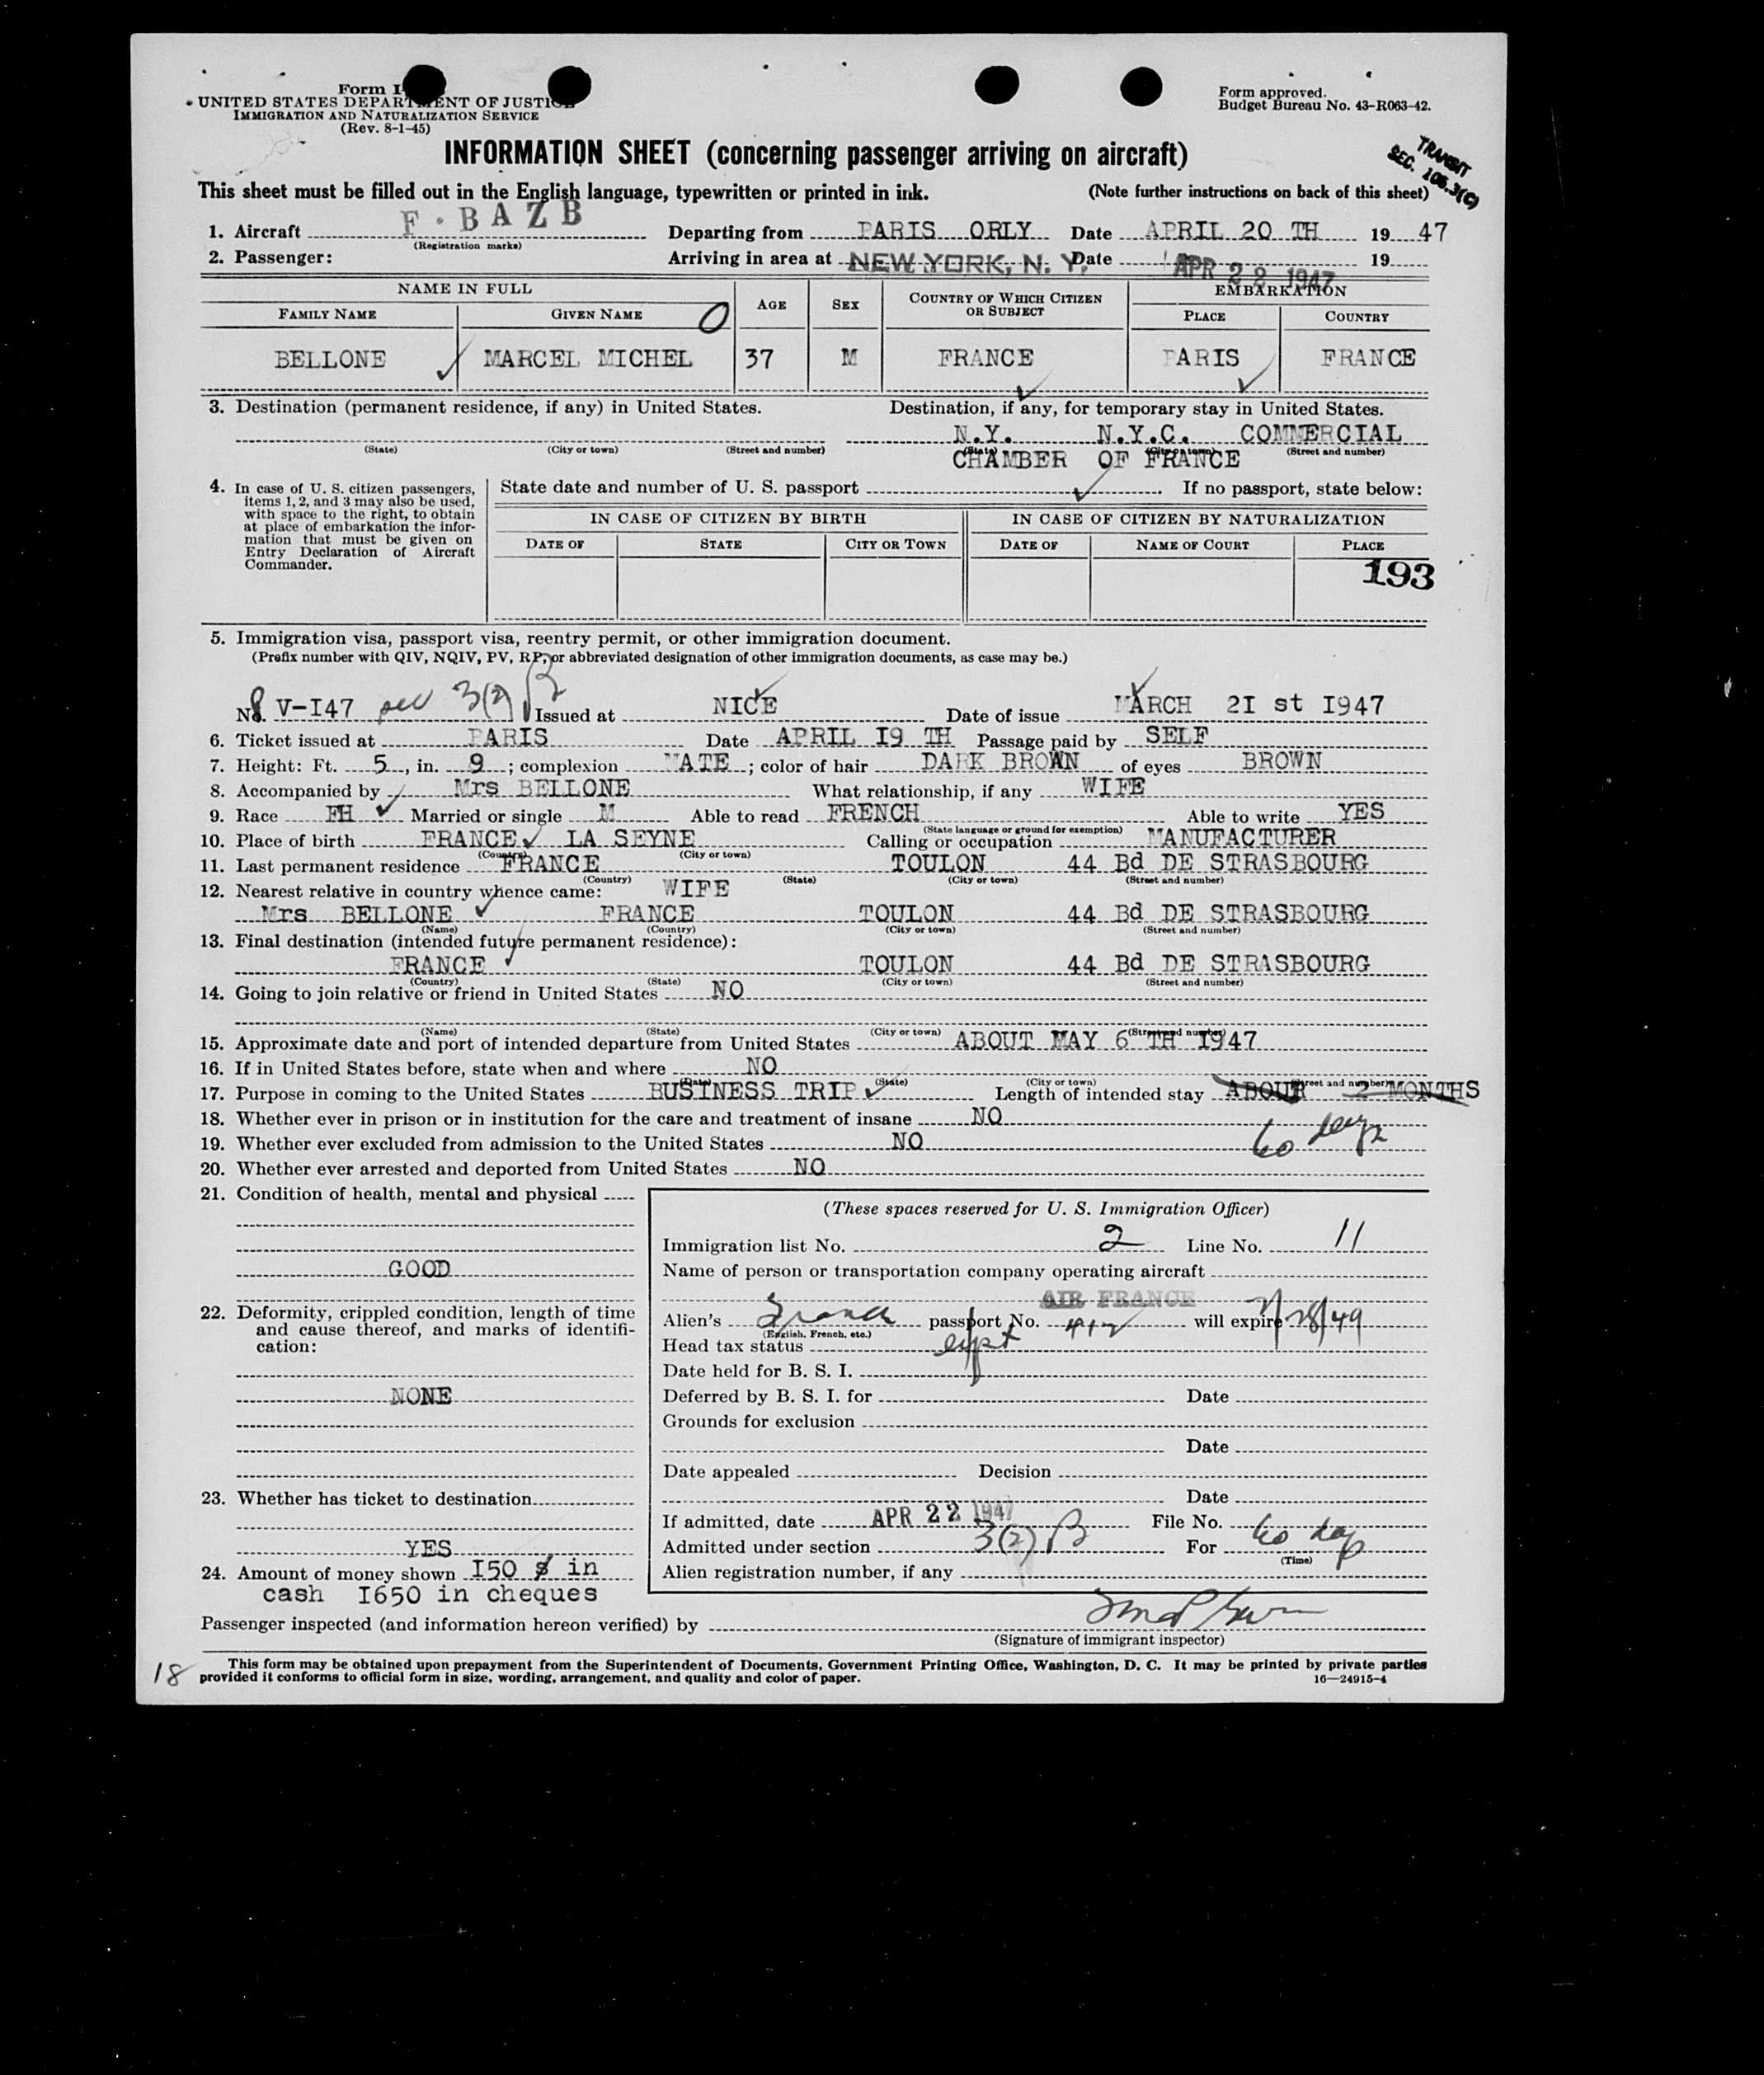 Form I
UNITED STATES DEPARTMENT OF JUSTICE
IMMIGRATION AND NATURALIZATION SERVICE
(Rev. 8-1-45)
Form approved.
Budget Bureau No. 43-R063-42.
INFORMATION SHEET (concerning passenger arriving on aircraft)
TRANSIT
SEC. 106.3(C)
This sheet must be filled out in the English language, typewritten or printed in ink. (Note further instructions on back of this sheet)
1. Aircraft F·BAZB Departing from PARIS ORLY Date APRIL 20 TH 19 47
(Registration marks)
2. Passenger: Arriving in area at NEW YORK, N. Y. Date APR 22 1947 19
NAME IN FULL AGE SEX COUNTRY OF WHICH CITIZEN OR SUBJECT EMBARKATION
FAMILY NAME GIVEN NAME PLACE COUNTRY
BELLONE MARCEL MICHEL 37 M FRANCE PARIS FRANCE
3. Destination (permanent residence, if any) in United States. Destination, if any, for temporary stay in United States.
N.Y. N.Y.C. COMMERCIAL
(State) (City or town) (Street and number) (State) (City or town) (Street and number)
CHAMBER OF FRANCE
4. In case of U. S. citizen passengers, items 1, 2, and 3 may also be used, with space to the right, to obtain at place of embarkation the information that must be given on Entry Declaration of Aircraft Commander.
State date and number of U. S. passport . If no passport, state below:
IN CASE OF CITIZEN BY BIRTH IN CASE OF CITIZEN BY NATURALIZATION
DATE OF STATE CITY OR TOWN DATE OF NAME OF COURT PLACE
193
5. Immigration visa, passport visa, reentry permit, or other immigration document.
(Prefix number with QIV, NQIV, PV, RP, or abbreviated designation of other immigration documents, as case may be.)
No. V-I47 sec 3(2) B Issued at NICE Date of issue MARCH 2I st I947
6. Ticket issued at PARIS Date APRIL I9 TH Passage paid by SELF
7. Height: Ft. 5, in. 9; complexion MATE; color of hair DARK BROWN of eyes BROWN
8. Accompanied by Mrs BELLONE What relationship, if any WIFE
9. Race FH Married or single M Able to read FRENCH Able to write YES
(State language or ground for exemption)
10. Place of birth FRANCE LA SEYNE Calling or occupation MANUFACTURER
(Country) (City or town)
11. Last permanent residence FRANCE TOULON 44 Bd DE STRASBOURG
(Country) (State) (City or town) (Street and number)
12. Nearest relative in country whence came: WIFE
Mrs BELLONE FRANCE TOULON 44 Bd DE STRASBOURG
(Name) (Country) (City or town) (Street and number)
13. Final destination (intended future permanent residence):
FRANCE TOULON 44 Bd DE STRASBOURG
(Country) (State) (City or town) (Street and number)
14. Going to join relative or friend in United States NO
(Name) (State) (City or town) (Street and number)
15. Approximate date and port of intended departure from United States ABOUT MAY 6 TH I947
16. If in United States before, state when and where NO
(Date) (State) (City or town) (Street and number)
17. Purpose in coming to the United States BUSINESS TRIP Length of intended stay ABOUT 2 MONTHS
60 days
18. Whether ever in prison or in institution for the care and treatment of insane NO
19. Whether ever excluded from admission to the United States NO
20. Whether ever arrested and deported from United States NO
21. Condition of health, mental and physical
GOOD
22. Deformity, crippled condition, length of time and cause thereof, and marks of identification:
NONE
23. Whether has ticket to destination
YES
24. Amount of money shown I50 $ in
cash I650 in cheques
(These spaces reserved for U. S. Immigration Officer)
Immigration list No. 2 Line No. 11
Name of person or transportation company operating aircraft
AIR FRANCE
Alien's French passport No. 412 will expire 2/28/49
(English, French, etc.)
Head tax status expt
Date held for B. S. I.
Deferred by B. S. I. for Date
Grounds for exclusion
Date
Date appealed Decision
Date
If admitted, date APR 22 1947 File No.
Admitted under section 3(2) B For 60 days
(Time)
Alien registration number, if any
Passenger inspected (and information hereon verified) by
(Signature of immigrant inspector)
18
This form may be obtained upon prepayment from the Superintendent of Documents, Government Printing Office, Washington, D. C. It may be printed by private parties
provided it conforms to official form in size, wording, arrangement, and quality and color of paper. 16—24915-4